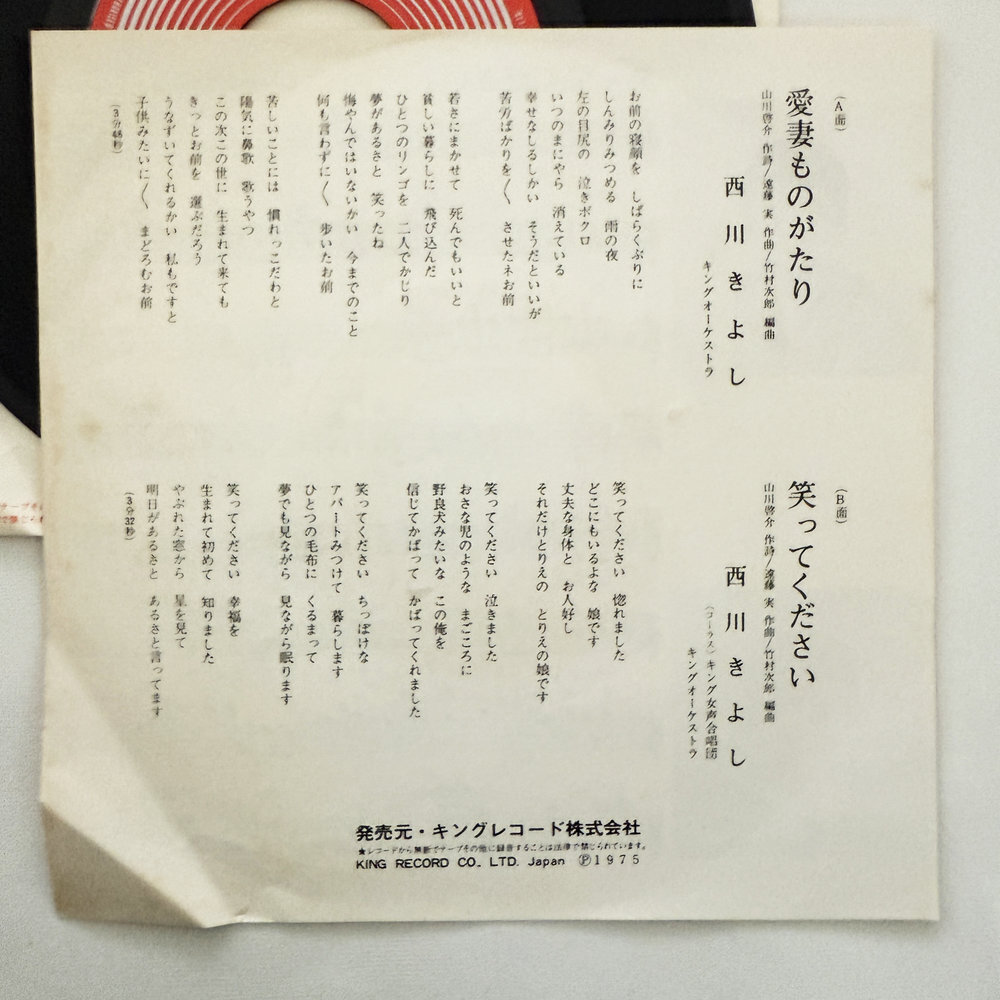 (A面)
愛妻ものがたり
山川啓介 作詩/遠藤 実 作曲/竹村次郎 編曲
西川きよし
キングオーケストラ
お前の寝顔を しばらくぶりに
しんみりみつめる 雨の夜
左の目尻の 泣きボクロ
いつのまにやら 消えている
幸せなしるしかい そうだといいが
苦労ばかりを〱 させたネお前
若さにまかせて 死んでもいいと
貧しい暮らしに 飛び込んだ
ひとつのリンゴを 二人でかじり
夢があるさと 笑ったね
悔やんではいないかい 今までのこと
何も言わずに〱 歩いたお前
苦しいことには 慣れっこだわと
陽気に鼻歌 歌うやつ
この次この世に 生まれて来ても
きっとお前を 選ぶだろう
うなずいてくれるかい 私もですと
子供みたいに〱 まどろむお前
(3分48秒)
(B面)
笑ってください
山川啓介 作詩/遠藤 実 作曲/竹村次郎 編曲
西川きよし
(コーラス) キング女声合唱団
キングオーケストラ
笑ってください 惚れました
どこにもいるよな 娘です
丈夫な身体と お人好し
それだけとりえの とりえの娘です
笑ってください 泣きました
おさな児のような まごころに
野良犬みたいな この俺を
信じてかばって かばってくれました
笑ってください ちっぽけな
アパートみつけて 暮らします
ひとつの毛布に くるまって
夢でも見ながら 見ながら眠ります
笑ってください 幸福を
生まれて初めて 知りました
やぶれた窓から 星を見て
明日があるさと あるさと言ってます
(3分32秒)
発売元・キングレコード株式会社
★レコードから無断でテープその他に録音することは法律で禁じられています。
KING RECORD CO., LTD. Japan Ⓟ1975